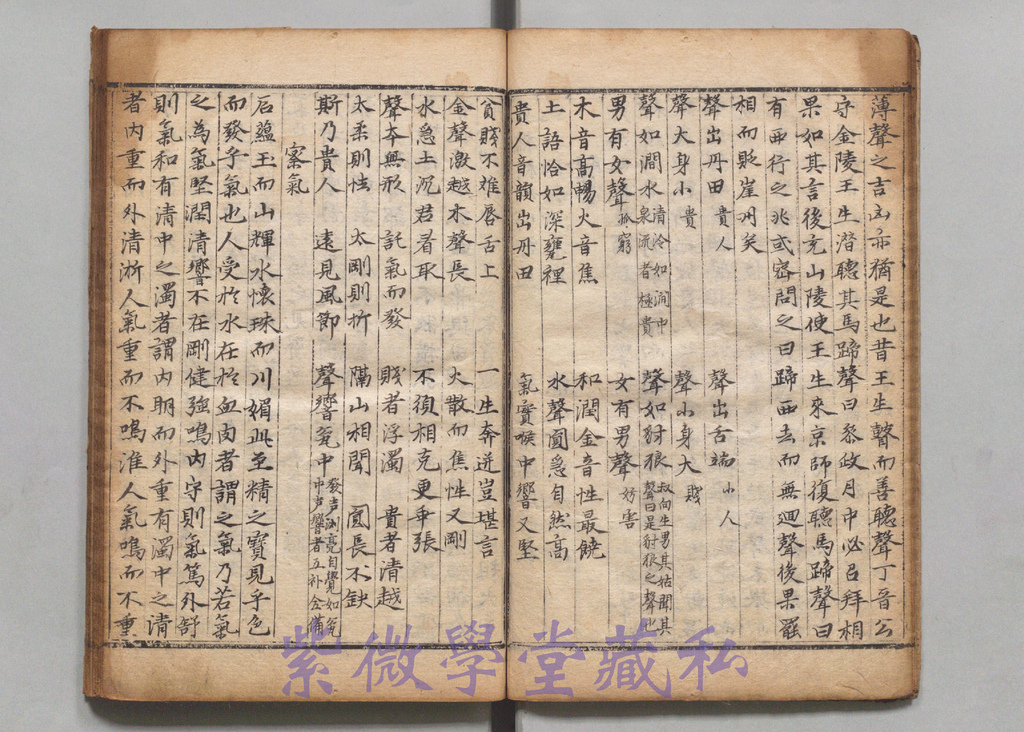 薄聲之吉凶亦猶是也昔王生瞽而善聽聲丁晉公
守金陵王生潛聽其馬蹄聲曰參政月中必召拜相
果如其言後充山陵使王生來京師復聽馬蹄聲曰
有西行之兆或密問之曰蹄西去而無廻聲後果罷
相而貶崖州矣
聲出丹田貴人 聲出舌端小人
聲大身小貴 聲小身大賤
聲如澗水清泠如澗中泉流者極貴 聲如豺狼叔向生男其姑聞其聲曰是豺狼之聲也
男有女聲孤窮 女有男聲妨害
木音高暢火音焦 和潤金音性最饒
土語恰如深甕裡 水聲圓急自然高
貴人音韻出丹田 氣實喉中響又堅
貧賤不難唇舌上 一生奔逬豈堪言
金聲激越木聲長 火散而焦性又剛
水急土沉君看取 不須相克更乖張
聲本無形 託氣而發 賤者浮濁 貴者清越
太柔則怯 太剛則折 隔山相聞 圓長不缺
斯乃貴人 遠見風節 聲響瓮中發声浏亮自覺如瓮中声響者五补全備
察氣
石蘊玉而山輝水懷珠而川媚此至精之寶見乎色
而發乎氣也人受於水在於血肉者謂之氣乃若氣
之為氣堅潤清響不在剛健強鳴內守則氣篤外舒
則氣和有清中之濁者謂內明而外重有濁中之清
者內重而外清淅人氣重而不鳴淮人氣鳴而不重
紫微學堂藏私